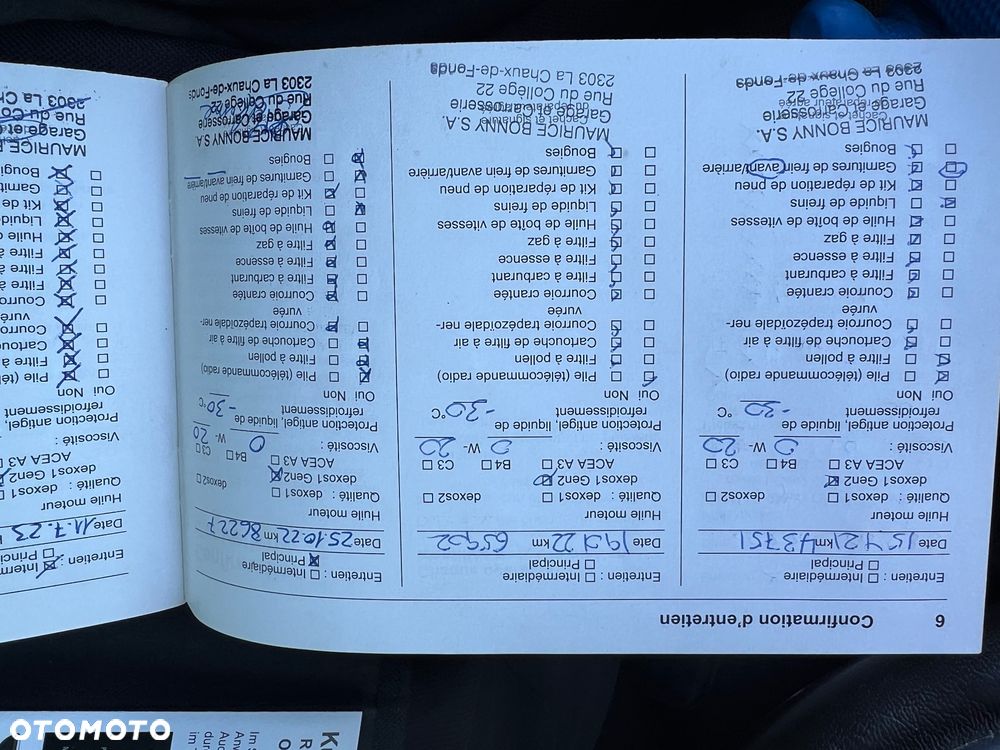 6 Confirmation d'entretien
Entretien : Intermédiaire
Principal
Date 15.4.21 km 43751
Huile moteur
Qualité : dexos1 dexos2
dexos1 Gen2
ACEA A3 B4 C3
Viscosité : 0 W- 20
Protection antigel, liquide de
refroidissement -30 °C
Oui Non
Pile (télécommande radio)
Filtre à pollen
Cartouche de filtre à air
Courroie trapézoïdale ner-
vurée
Courroie crantée
Filtre à carburant
Filtre à essence
Filtre à gaz
Huile de boîte de vitesses
Liquide de freins
Kit de réparation de pneu
Garnitures de frein avant/arrière
Bougies
MAURICE BONNY S.A.
Garage et Carrosserie
Cachet et signature
du réparateur agréé
Rue du Collège 22
2303 La Chaux-de-Fonds
Entretien : Intermédiaire
Principal
Date 19.01.22 km 65902
Huile moteur
Qualité : dexos1 dexos2
dexos1 Gen2
ACEA A3 B4 C3
Viscosité : 0 W- 20
Protection antigel, liquide de
refroidissement -30 °C
Oui Non
Pile (télécommande radio)
Filtre à pollen
Cartouche de filtre à air
Courroie trapézoïdale ner-
vurée
Courroie crantée
Filtre à carburant
Filtre à essence
Filtre à gaz
Huile de boîte de vitesses
Liquide de freins
Kit de réparation de pneu
Garnitures de frein avant/arrière
Bougies
MAURICE BONNY S.A.
Cachet et signature
Garage et Carrosserie
Rue du Collège 22
2303 La Chaux-de-Fonds
Entretien : Intermédiaire
Principal
Date 25.10.22 km 86227
Huile moteur
Qualité : dexos1 dexos2
dexos1 Gen2
ACEA A3 B4 C3
Viscosité : 0 W- 20
Protection antigel, liquide de
refroidissement -30 °C
Oui Non
Pile (télécommande radio)
Filtre à pollen
Cartouche de filtre à air
Courroie trapézoïdale ner-
vurée
Courroie crantée
Filtre à carburant
Filtre à essence
Filtre à gaz
Huile de boîte de vitesses
Liquide de freins
Kit de réparation de pneu
Garnitures de frein avant/arrière
Bougies
MAURICE BONNY S.A.
Garage et Carrosserie
Rue du Collège 22
2303 La Chaux-de-Fonds
Entretien : Interm
Principal
Date 11.7.23
Huile moteur
Qualité : dexos1
dexos1 Gen2
ACEA A3
Viscosité :
Protection antigel,
refroidissement
Oui Non
Pile (tél
Filtre à
Cartou
Courro
vurée
Courro
Filtre à
Filtre à
Filtre à
Huile
Liquid
Kit de
Garnit
Bougi
MAURICE BO
Garage et Ca
Rue du Co
2303 La Ch
OTOMOTO